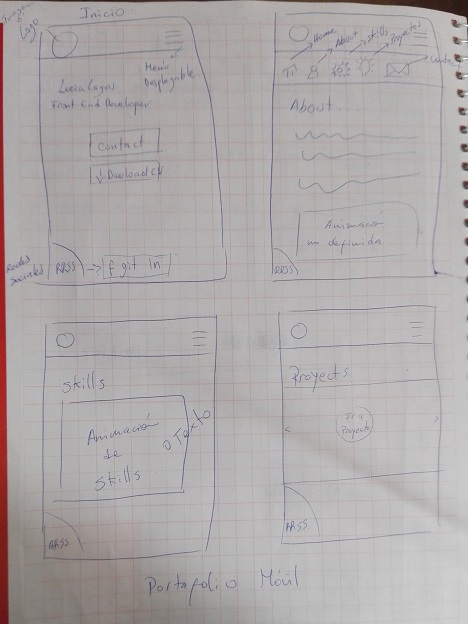 Imagen
o
Logo
Inicio
Menú
Desplegable
Lucia Lagos
Front End Developer
Contact
↓ Download CV
Redes
Sociales
RRSS
f git In
Home
About
Skills
Proyects
Contact
About....
Animación
no definida
RRSS
Skills
Animación
de
Skills
o Texto
RRSS
Proyects
<
Ir a
Proyecto
>
RRSS
Portafolio Móvil